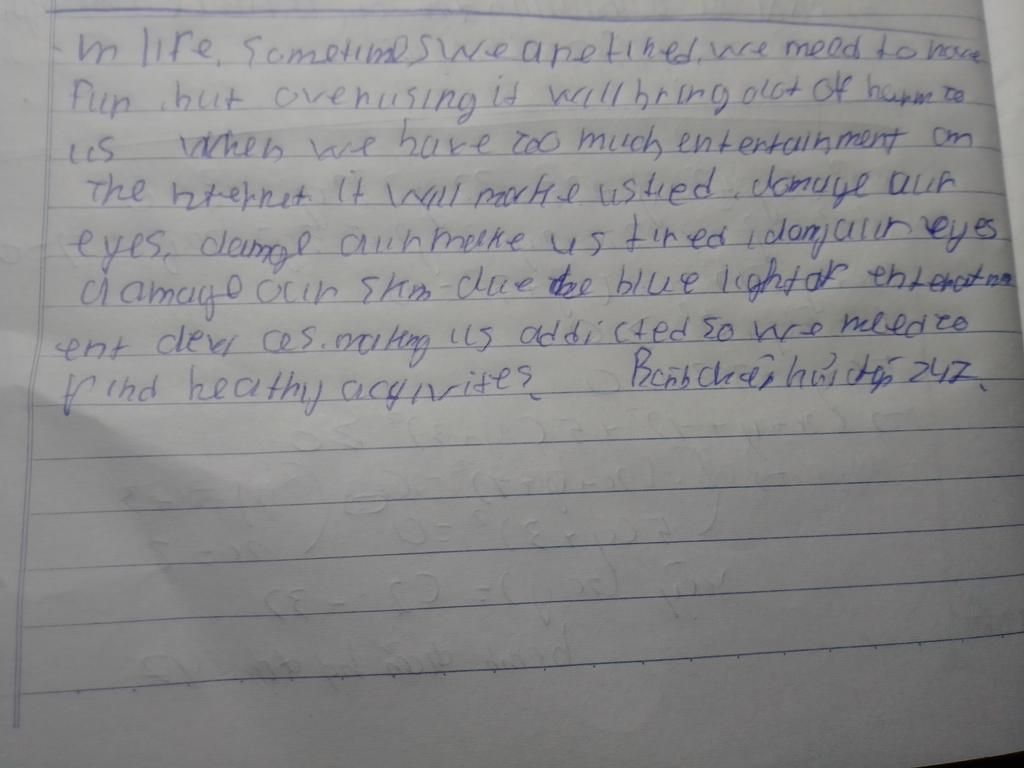 In life, sometimes we are tired, we need to have
fun, but overusing it will bring alot of harm to
us when we have too much entertainment on
the nternet. it will make us tied, damage our
eyes, damage our make us tired, damg our eyes
damage our skin due to blue light of entertainm
ent devices. making us addicted so we need to
find heathy acyivites.